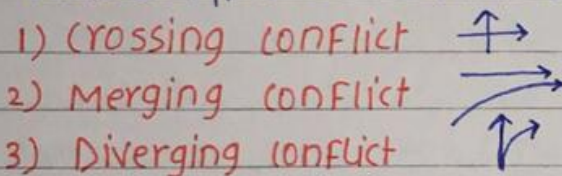 1) Crossing conflict
2) Merging conflict
3) Diverging conflict